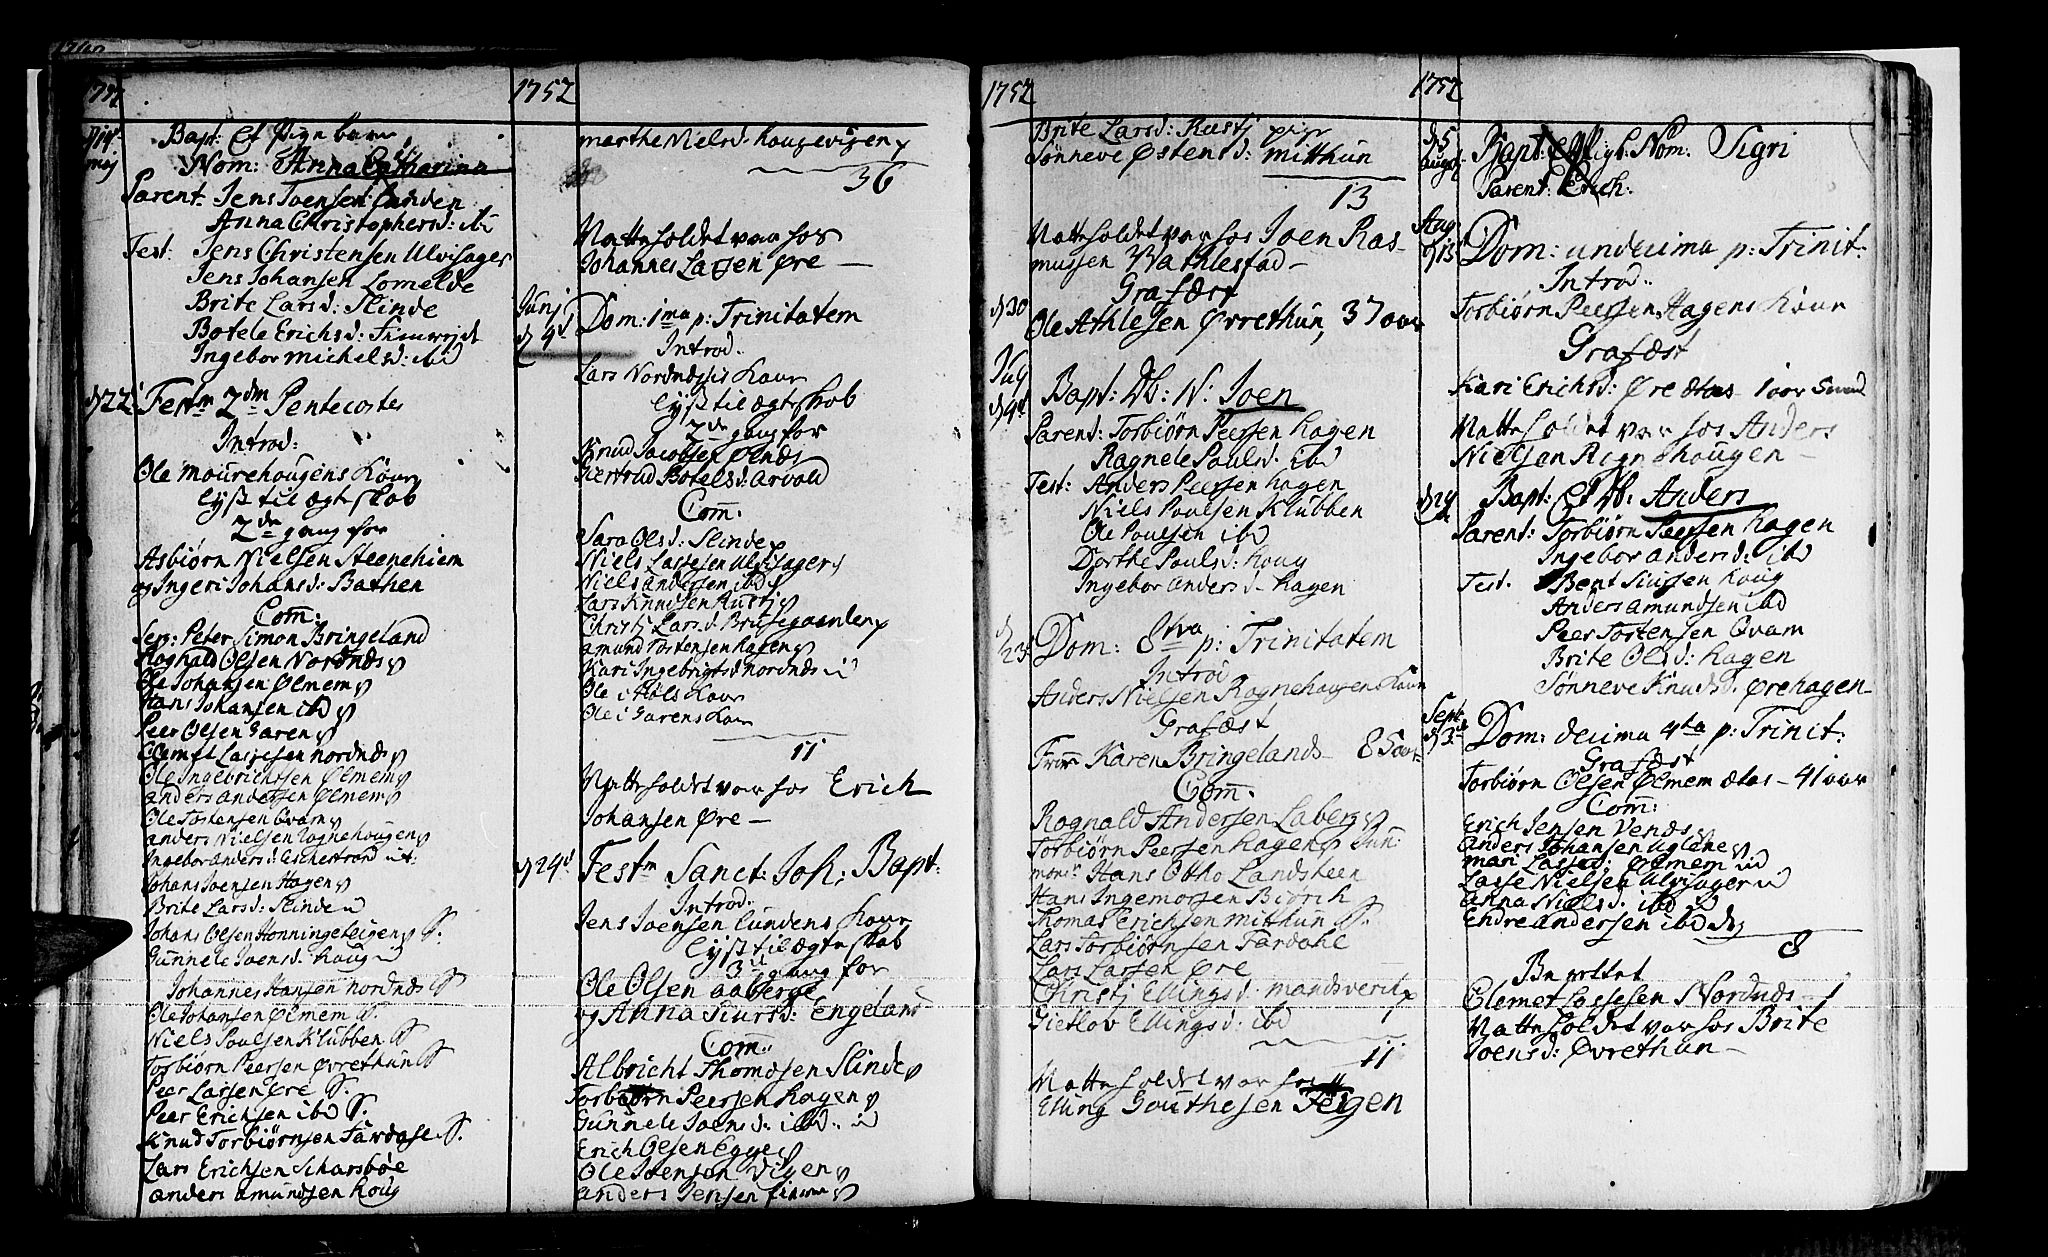 1752
d 14 maj
Bapt: Et Pige barn
Nom: Anna Catharina
Parent. Jens Joensen Lunden
Anna Christophersd: ibd
Test: Jens Christensen Ulvisager
Jens Johansen Lomelde
Brite Larsd: Slinde
Botele Erichsd:
Ingebor Michelsd: ibd
d 22 Festm 2dm Pentecostes
Introd:
Ole Mourehougens Kone
Lyst til ægteskab
2de gang for
Asbiørn Nielsen Steenehiem
og Ingeri Johansd: Bathen
Com:
Sep: Peter Simon Bringeland
Rognald Olsen Nordnæs
Ole Johansen Ølmem
Hans Johansen ibd
Peer Olsen Garen
Clemet Lassesen Nordnæs
Ole Ingebrichtsen Ølmem
Anders Andersen Ølmem
Ole Tostensen Qvam
Anders Nielsen Rognehougen
Ingebor Andersd: Eschestrand
Johans Joensen Hagen
Brite Larsd: Slinde
Johans Olsen Honningeteigen S.
Gunnele Joensd: Houg
Johannes Hansen Nordnæs S
Ole Johansen Ølmem S.
Niels Poulsen Klubben S
Torbiørn Peersen Øvrethun S
Peer Lassen Øre S.
Peer Erichsen ibd S.
Knud Torbiørnsen Fardale S.
Lars Erichsen Scharsbøe
Anders Amundsen Houg
1752
Marthe Nielsd. Haugevigen
36
Natte holdet var hos
Johannes Lassen Øre —
Junj d 4d Dom: 1ma p: Trinitatem
Introd:
Lars Nordnæsis Kone
Lyst til ægteskab
2de gang for
Knud Jacobsen Ølnæs
Giertrud Botelsd: Arvold
Com:
Sara Olsd: Slinde
Niels Lassesen Ulvisager
Niels Andersen ibd
Lars Knudsen Rustj
Christj Larsd Brusegaarden
Amund Tostensen Hagen
Kari Ingebrigtsd Nordnæs
Ole i Hols Kone
Ole i Garens Kone
11
Natte holdet var hos Erich
Johansen Øre —
d 24d Festm Sanct: Joh: Bapt:
Introd.
Jens Joensen Lundens Kone
Lyst til ægteskab
3d gang for
Ole Olsen Aaberge
og Anna Siursd: Engeland
Com:
Albricht Thomasen Slinde
Torbiørn Peersen Hagen
Gunnele Joensd: ibd
Erich Olsen Egge
Ole Joensøn Vigen
Anders Jensen
1752
Brite Larsd: Rustj
Sønneve Østensd: Mitthun
13
Natte holdet var hos Joen Ras-
mussen Vathlestad —
Grafæst
d 30 Ole Athlesen Øvrethun, 37 aar
July d 9d Bapt: Db: N: Joen
Parent: Torbiørn Peersen Hagen
Ragnele Poulsd. ibd
Test: Anders Peersen Hagen
Niels Poulsen Klubben
Ole Poulsen ibd
Dorthe Poulsd: Houg
Ingebor Andersd. Hagen
d 23 Dom: 8va p: Trinitatem
Introd
Anders Nielsen Rognehougens Kone
Grafæst
Karen Bringelands 85 aar
Com.
Rognald Andersen Laberg
Torbiørn Peersen Hagen
Hans Otho Landskeen
Hans Ingemorsen Biørch
Thomas Erichsen Mitthun S.
Lars Torbiørnsen Fardahl
Lars Larsen Øre
Christj Ellingsd: Mandsverk
Gietlov Ellingsd: ibd
11
Natte holdet var hos
Elling Gouthesen Teigen
1752
d 5 Augst: Bapt: Et Pigb. Nom. Sigri
Parent: Erich.
Aug d 13 Dom: undecima p: Trinit:
Introd:
Torbiørn Peersen Hagens Kone
Grafæst
Kari Erichsd: Øre ætas — 1 aar
Natte holdet var hos Anders
Nielsen Rognehougen —
Bapt: Et Db: Anders
Parent: Torbiørn Peersen Hagen
Ingebor Andersd: ibd
Test. Bent Siursen Houg
Anders Amundsen ibd
Peer Tostensen Qvam
Brite Olsd: Hagen
Sønneve Knudsd. Ørehagen
Sept d 3d Dom: decima 4ta p: Trinit:
Grafæst
Torbiørn Olsen Ølmem ætas — 41 aar
Com:
Erich Jensen Venæs
Anders Johansen Uglene
Mari Lassed: Ølmem
Lasse Nielsen Ulvisager
Anna Nielsd. ibd
Endre Andersen ibd
8
Berettet
Clemet Lassesen Nordnæs — 1
Natte holdet var hos Brite
Joensd: Øvrethun —